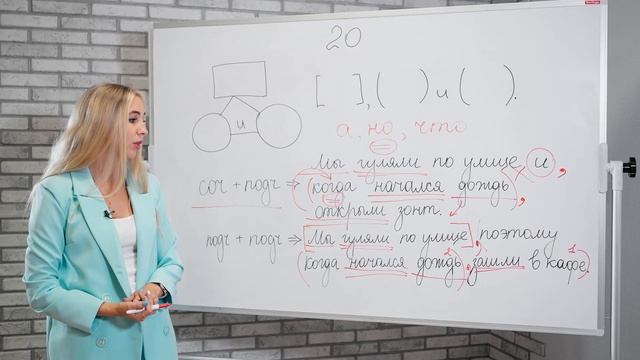 20
и
[ ], ( ) и ( ).
а, но, что
Мы гуляли по улице и,
соч + подч ⇒ (когда начался дождь),
открыли зонт.
подч + подч ⇒ [Мы гуляли по улице], поэтому
2 1
(когда начался дождь), зашли в кафе)